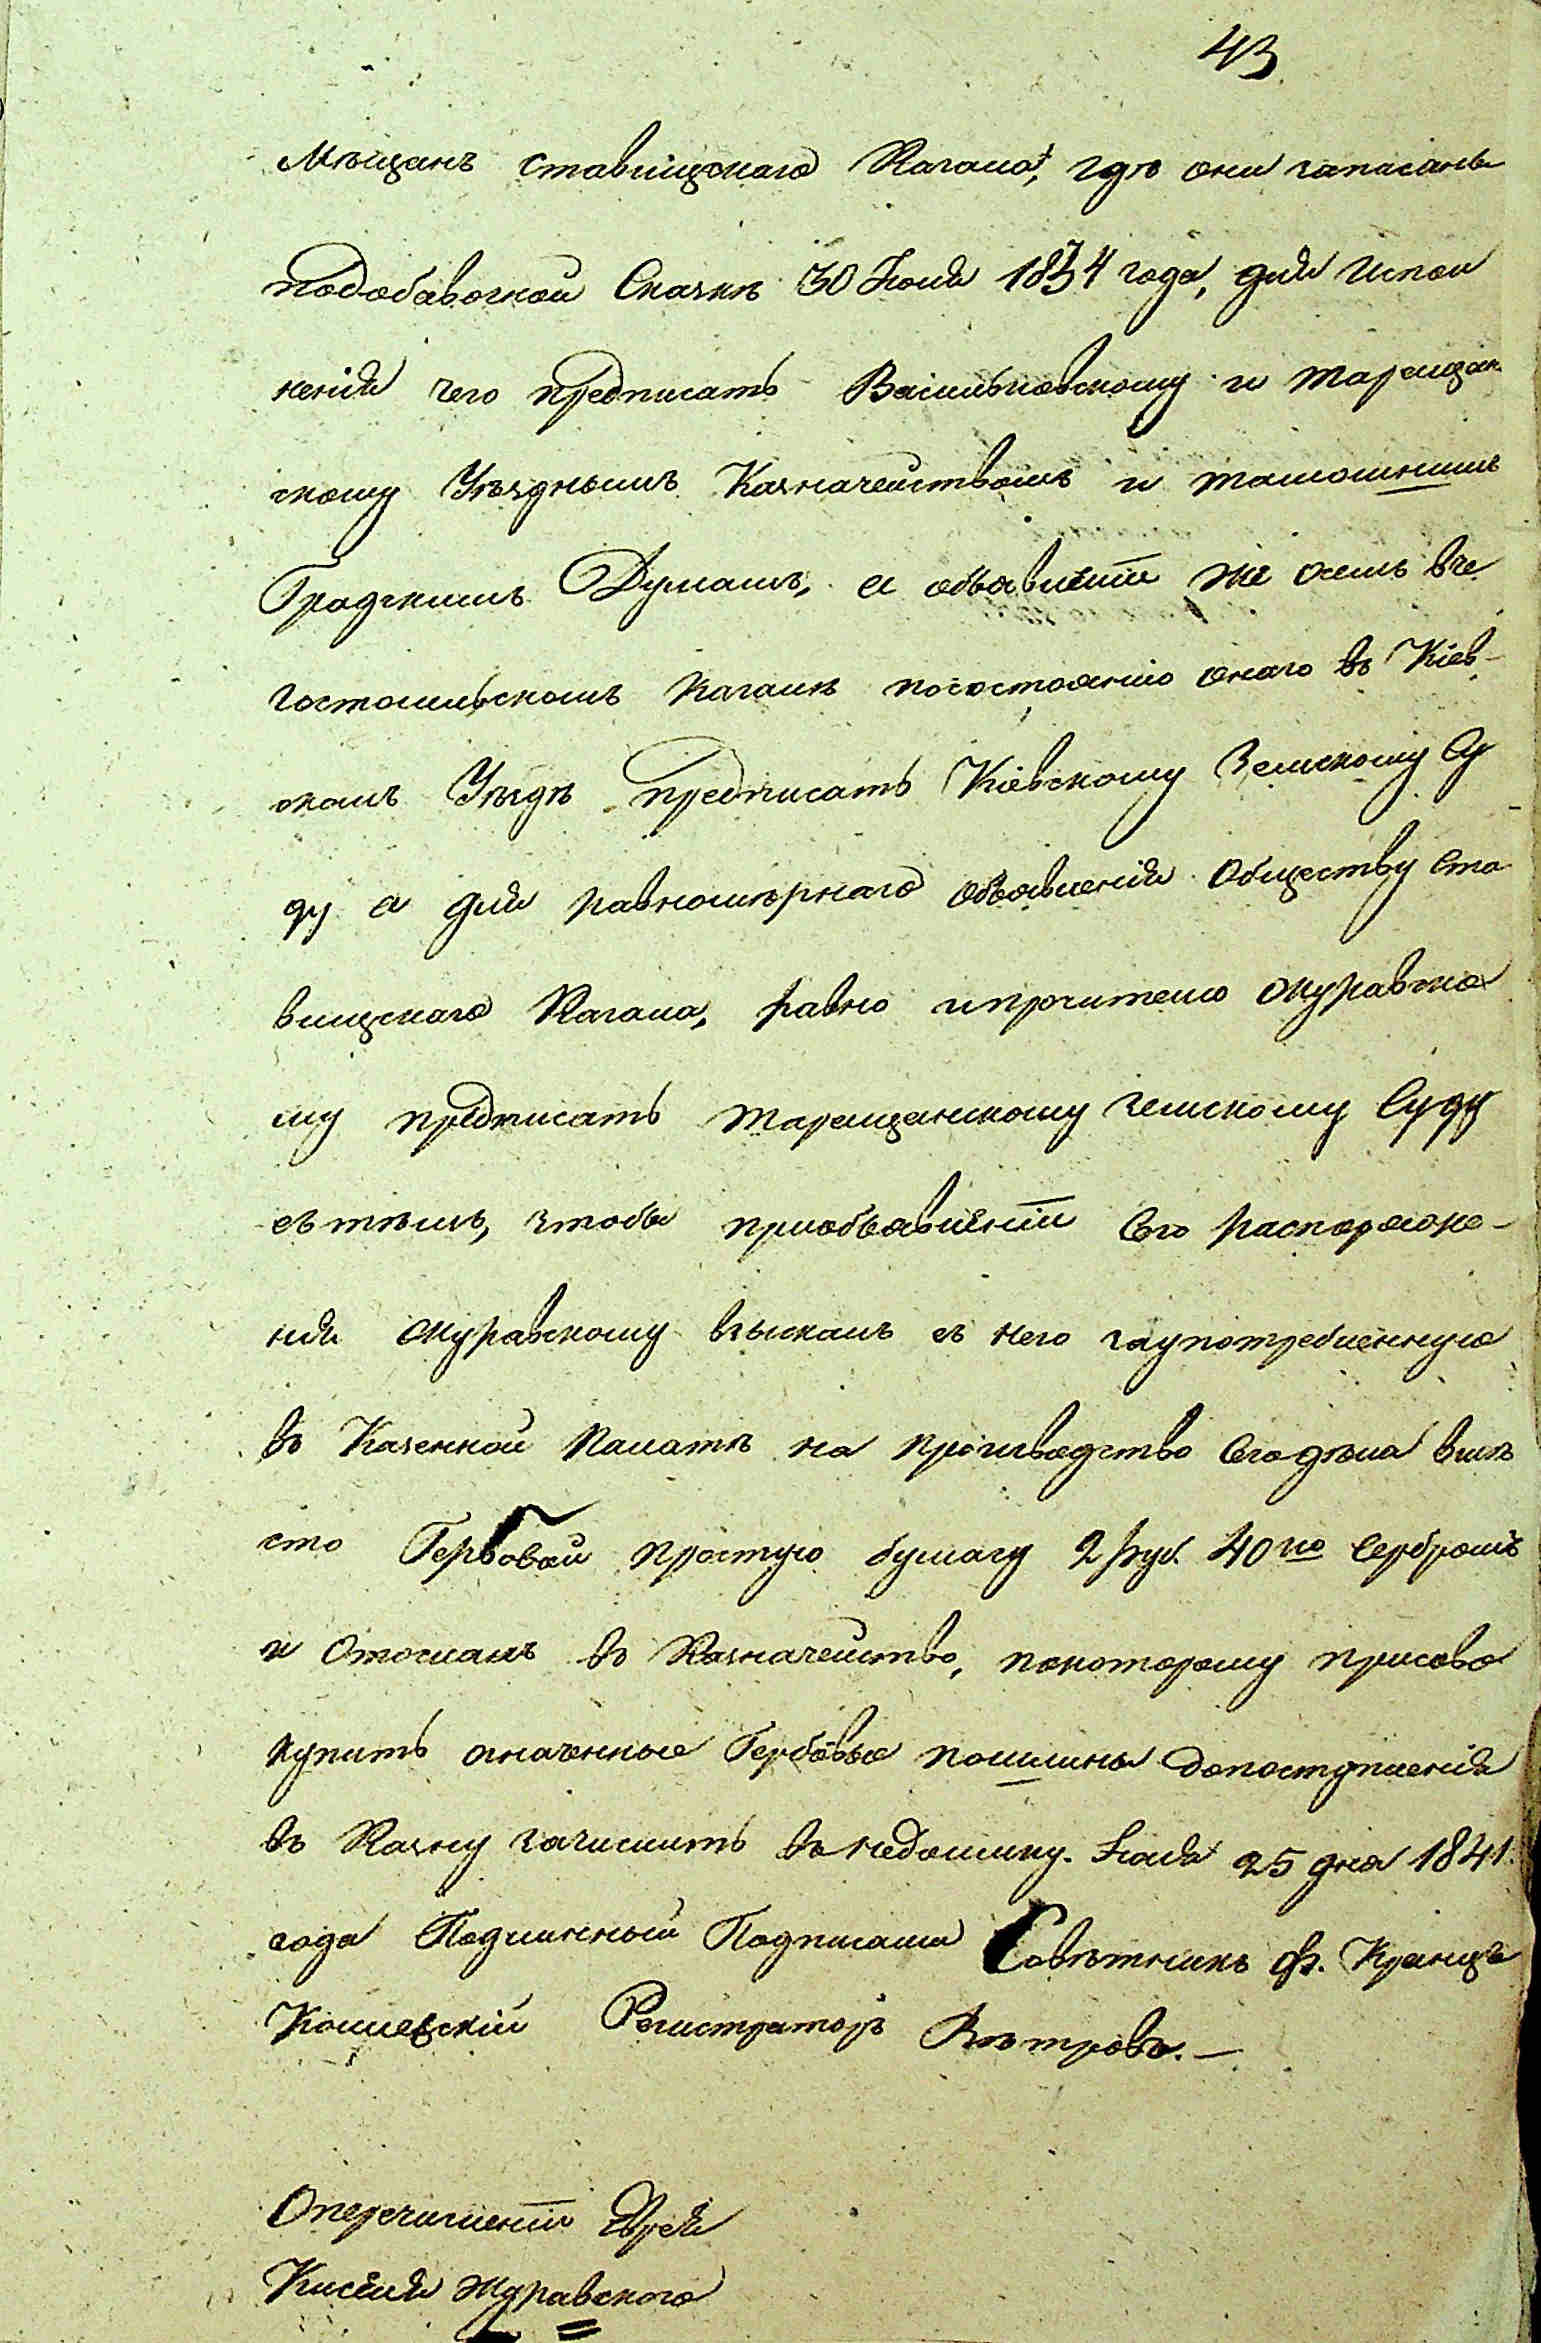 43
Мѣщанъ ставищскаго Кагала, гдѣ они записаны
подобавочной Сказкѣ 30 Іюня 1834 года, для Испол
ненія чего предписать Васильковскому и Таращан
скому Уѣзднымъ Казначействамъ и тамошнимъ
Градскимъ Думамъ, а объявленіи же Семъ въ Че
гостомльскомъ Кагалѣ посостоянію онаго въ Кіев-
скомъ Уѣздѣ предписать Кіевскому Земскому Су
ду а для равномѣрнаго объявленія Обществу Ста
вищскаго Кагала, равно ипросителю Журавско
му предписать Таращанскому земскому Суду
съ тѣмъ, чтобы приобъявленіи Сего распоряже-
нія Журавскому взыскалъ съ него заупотребленную
въ Казенной Палатѣ на производство Сегодѣла вмѣ
сто Гербовой простую бумагу 2 руб. 40 ко Серебромъ
и Отослалъ въ Казначейство, покоторому присово
купить означенные Гербовые пошлины допоступленія
въ Казну зачислить въ недоимку. Іюля 25 дня 1841
года Подлинный Подписали Совѣтникъ Ф. Кранцъ
Регистраторъ Вѣтровъ.—
Оперечисленіи Еврея
Киселя Журавскаго